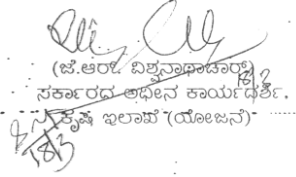 (ಜೆ.ಆರ್. ವಿಶ್ವನಾಥಾಚಾರ್)
18/3
ಸರ್ಕಾರದ ಅಧೀನ ಕಾರ್ಯದರ್ಶಿ,
ಕೃಷಿ ಇಲಾಖೆ (ಯೋಜನೆ)
18/3